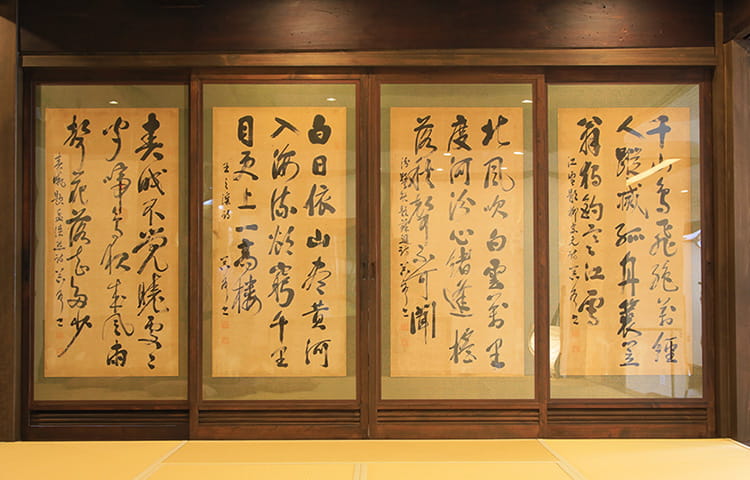 千山鳥飛絶萬徑
人蹤滅孤舟蓑笠
翁獨釣寒江雪
北風吹白雲萬里
度河汾心緒逢搖
落秋聲不可聞
白日依山盡黄河
入海流欲窮千里
目更上一層樓
王之渙詩
春眠不覺曉處々
聞啼鳥夜來風雨
聲花落知多少